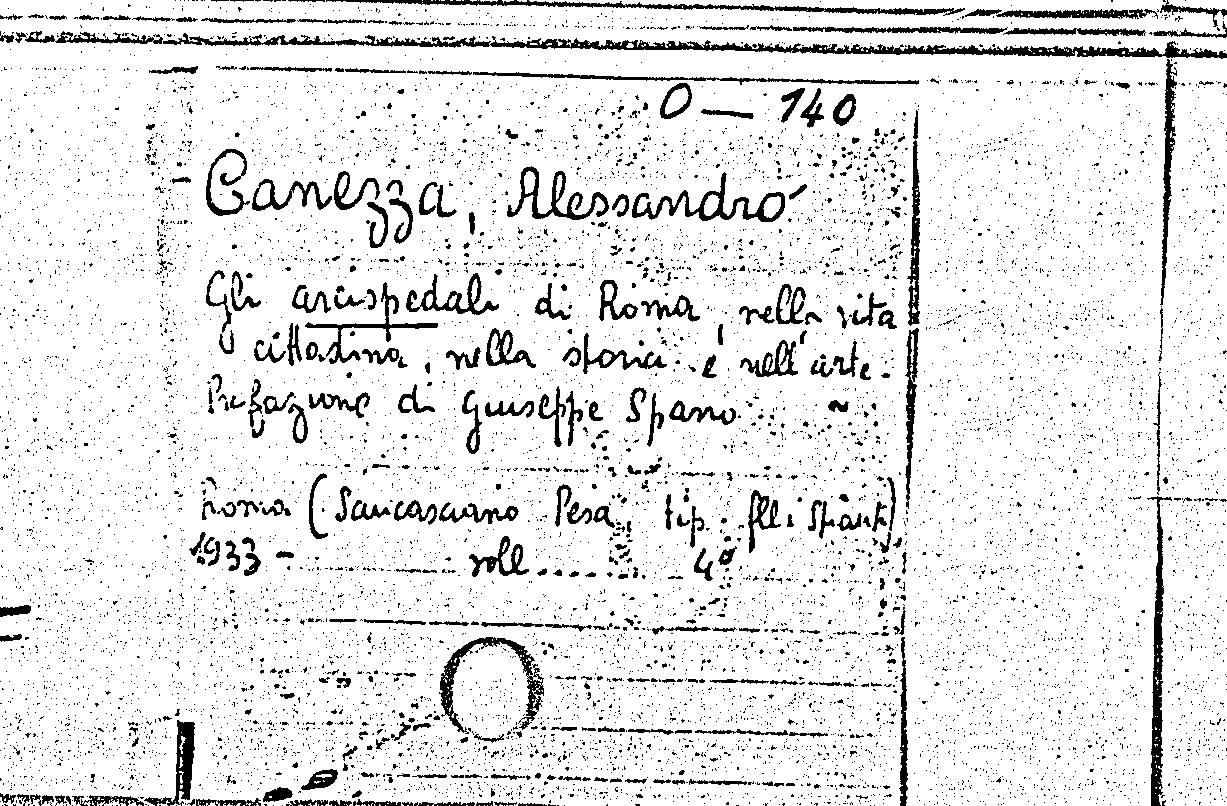 O — 140
Canezza, Alessandro
Gli arcispedali di Roma, nella vita
cittadina, nella storia e nell'arte.
Prefazione di Giuseppe Spano
Roma (Sancasciano Pesa, tip. flli Stianti)
1933 - voll..... 4º